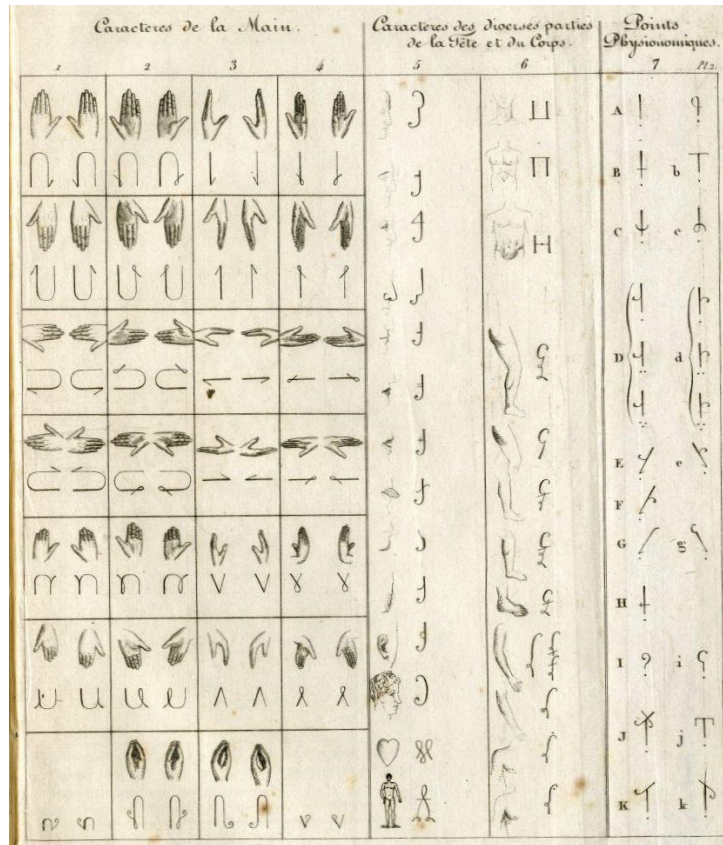 Caractères de la Main.
Caractères des diverses parties
de la Tête et du Corps.
Points
Physionomiques.
1 2 3 4 5 6 7 Pl.2.
A
B b
C c
D d
E e
F
G g
H
I i
J j
K k